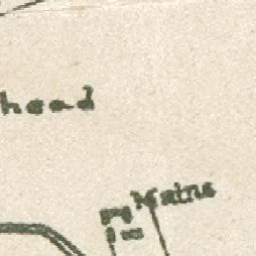 head
Mains